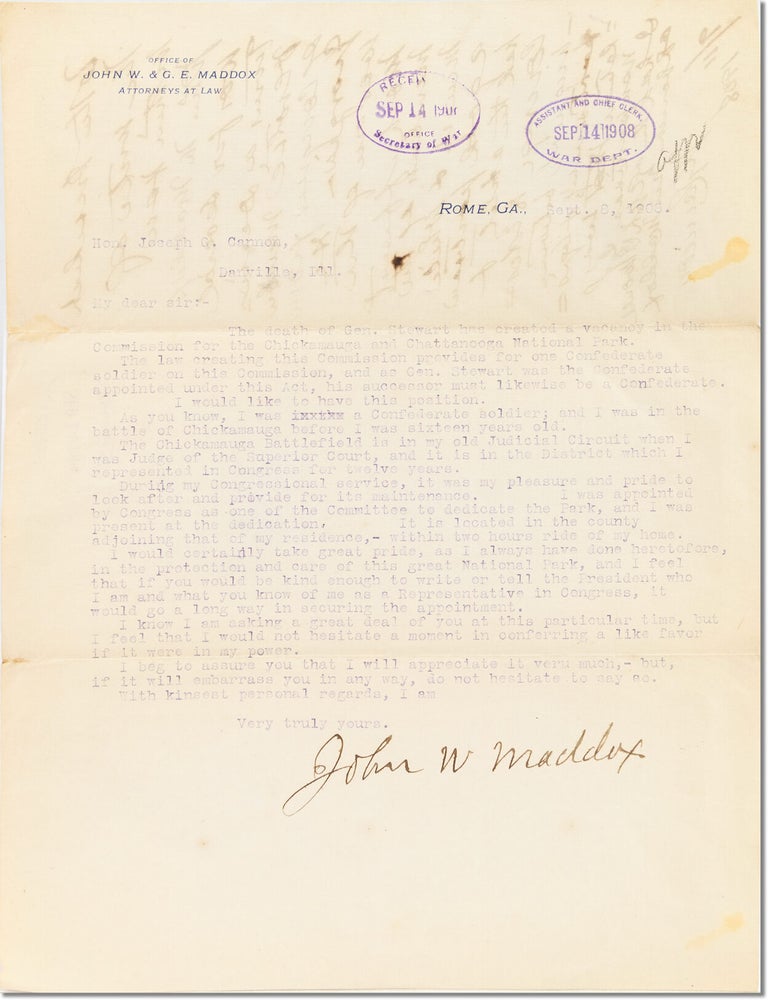 OFFICE OF
JOHN W. & G. E. MADDOX
ATTORNEYS AT LAW
SEP 14
OFFICE
Secretary of War
ASSISTANT AND CHIEF CLERK.
SEP 14 1908
WAR DEPT.
ROME, GA., Sept. 8, 1908.
Hon. Joseph G. Cannon,
Danville, Ill.
My dear sir:-
The death of Gen. Stewart has created a vacancy in the
Commission for the Chickamauga and Chattanooga National Park.
The law creating this Commission provides for one Confederate
soldier on this Commission, and as Gen. Stewart was the Confederate
appointed under this Act, his successor must likewise be a Confederate.
I would like to have this position.
As you know, I was a Confederate soldier; and I was in the
battle of Chickamauga before I was sixteen years old.
The Chickamauga Battlefield is in my old Judicial Circuit when I
was Judge of the Superior Court, and it is in the District which I
represented in Congress for twelve years.
During my Congressional service, it was my pleasure and pride to
look after and provide for its maintenance. I was appointed
by Congress as one of the Committee to dedicate the Park, and I was
present at the dedication. It is located in the county
adjoining that of my residence,- within two hours ride of my home.
I would certainly take great pride, as I always have done heretofore,
in the protection and care of this great National Park, and I feel
that if you would be kind enough to write or tell the President who
I am and what you know of me as a Representative in Congress, it
would go a long way in securing the appointment.
I know I am asking a great deal of you at this particular time, but
I feel that I would not hesitate a moment in conferring a like favor
if it were in my power.
I beg to assure you that I will appreciate it veru much,- but,
if it will embarrass you in any way, do not hesitate to say so.
With kinsest personal regards, I am
Very truly yours.
John W Maddox